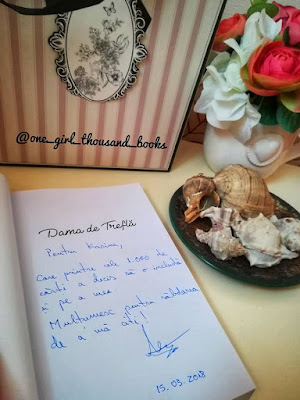 @one_girl_thousand_books
Dama de Treflă
Pentru
Care printre ale 1.000 de
cărți a decis să o includă
și pe a mea
Mulțumesc pentru răbdarea
de a mă citi!
15.03.2018